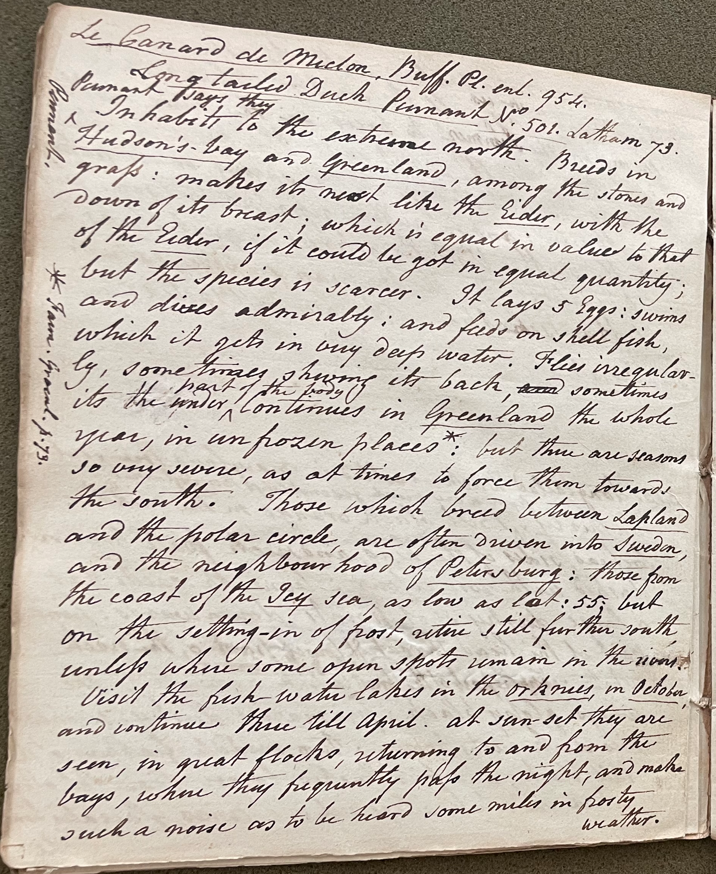 Le Canard de Miclon, Buff. Pl. enl. 954.
Long tailed Duck Pennant No 501. Latham 73.
Pennant says they
Inhabits to the extreme north. Breeds in
Hudson's-bay and Greenland, among the stones and
grass: makes its nest like the Eider, with the
down of its breast; which is equal in value to that
of the Eider, if it could be got in equal quantity;
but the species is scarcer. It lays 5 Eggs: swims
and dives admirably: and feeds on shell fish,
which it gets in very deep water. Flies irregular-
ly, sometimes shewing its back, and sometimes
part of the body
its the under ^ Continues in Greenland the whole
year, in unfrozen places*: but there are seasons
so very severe, as at times to force them towards
the south. Those which breed between Lapland
and the polar circle, are often driven into Sweden,
and the neighbourhood of Petersburg: those from
the coast of the Icy sea, as low as lat: 55, but
on the setting-in of frost, retire still further south,
unless where some open spots remain in the rivers.
Visit the fresh water lakes in the orknies, in October,
and continue there till April. at sun-set they are
seen, in great flocks, returning to and from the
bays, where they frequently pass the night, and make
such a noise as to be heard some miles in frosty
weather.
Pennant.
* Faun. Groenl. p. 73.